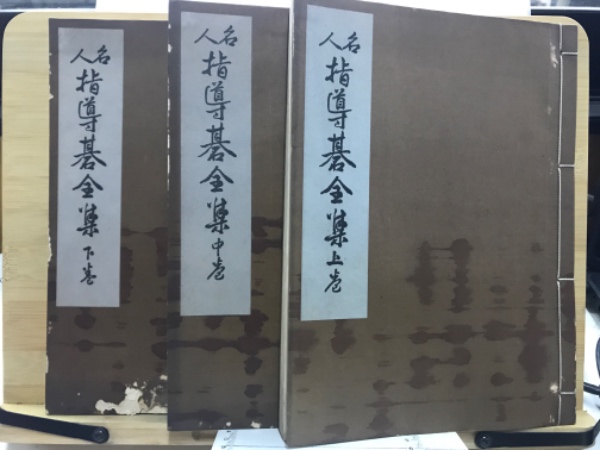 名人指導碁全集下巻
名人指導碁全集中巻
名人指導碁全集上巻